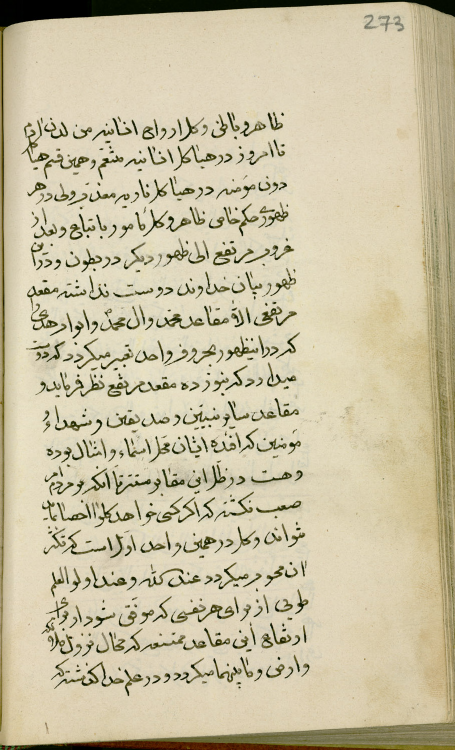 273
ظاهر و باطن و کل ارواح افئانیه من لدن آدم
تا امروز در هیاکل افئانیه متنعم و همین قسم هیاکل
دون مؤمنه در هیاکل ناریه معذب ولی در هر
ظهوری حکم خاص ظاهر و کل مامور باتباع و بعد از
غروب مرتفع الی ظهور دیگر در بطون و در این
ظهور بیان خداوند دوست نداشته مقعد
مرتفعی الا مقاعد محمد وال محمد و ابواب هدی
که در این ظهور بحروف واحد تعبیر میگردد که دوست
میدارد که نوزده مقعد مرتفع نظر فرماید و
مقاعد سایر نبیین و صدیقین و شهداء و
مؤمنین که افئده ایشان محل اسماء و امثال بوده
و هست در ظل این مقابر مستتر تا آنکه بر مردم امر
صعب نگشته که اگر کسی خواهد کل را احصا نماید
نتواند و کل در همین واحد اول است که تکثر
ان محبوب میگردد عند الله و عند اولو العلم
طوبی از برای هر نفسی که موفق شود از برای
ارتفاع این مقاعد ممتنعه که محال نزول ملائکه
وارض و ما بینهما میگردد و در علم خدا گذشته که